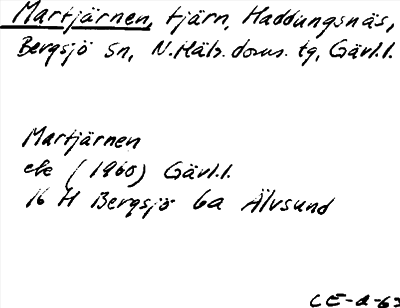 Martjärnen, tjärn, Haddungsnäs,
Bergsjö sn, N. Häls. doms. tg, Gävl.l.
Martjärnen
ek (1960) Gävl.l.
16 H Bergsjö 6a Älvsund
CE-a-63